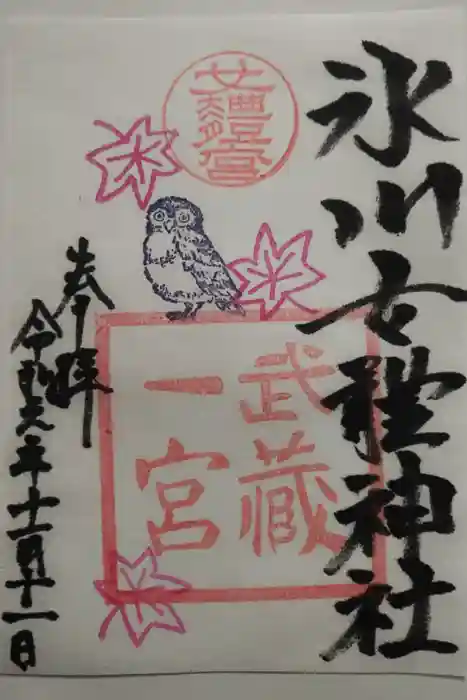 氷川女體神社
武藏
一宮
奉拝
令和元年十一月十一日